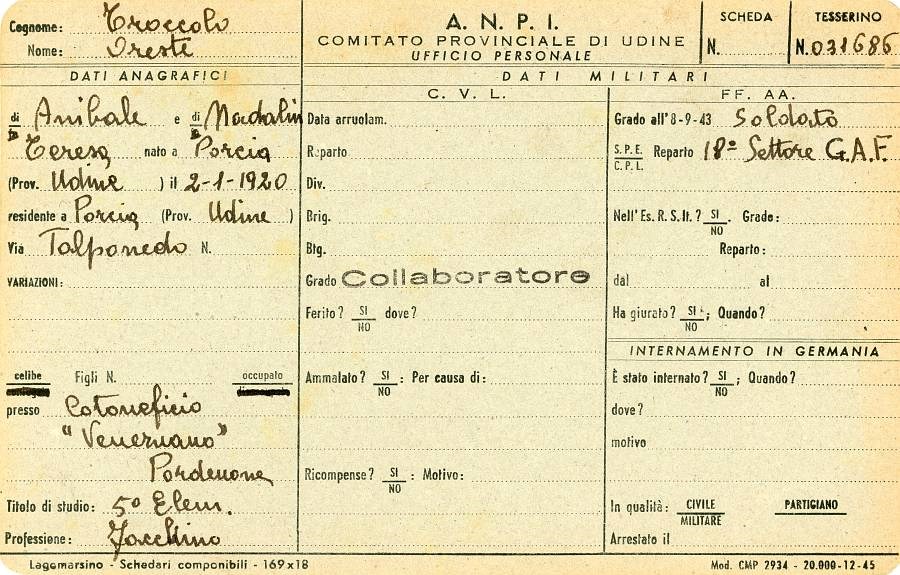 Cognome: Troccolo
Nome: Oreste
A. N. P. I.
COMITATO PROVINCIALE DI UDINE
UFFICIO PERSONALE
SCHEDA
N.
TESSERINO
N. 031686
DATI ANAGRAFICI
di Anibale e di Madalin
Teresa nato a Porcia
(Prov. Udine ) il 2-1-1920
residente a Porcia (Prov. Udine )
Via Talponedo N.
VARIAZIONI:
celibe Figli N. occupato
presso Cotoneficio
"Veneruano"
Pordenone
Titolo di studio: 5º Elem.
Professione: Facchino
DATI MILITARI
C. V. L.
Data arruolam.
Reparto
Div.
Brig.
Btg.
Grado Collaboratore
Ferito? SI NO dove?
Ammalato? SI NO : Per causa di:
Ricompense? SI NO : Motivo:
FF. AA.
Grado all'8-9-43 Soldato
S.P.E. C.P.L. Reparto 18º Settore G.A.F.
Nell'Es. R. S. It.? SI NO . Grado:
Reparto:
dal al
Ha giurato? SI NO ; Quando?
INTERNAMENTO IN GERMANIA
È stato internato? SI NO ; Quando?
dove?
motivo
In qualità: CIVILE MILITARE PARTIGIANO
Arrestato il
Lagomarsino - Schedari componibili - 169x18
Mod. CMP 2934 - 20.000-12-45